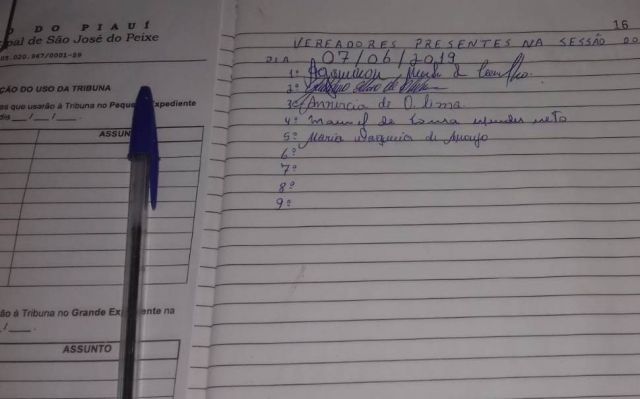 O DO PIAUÍ
pal de São José do Peixe
ÇÃO DO USO DA TRIBUNA
es que usarão à Tribuna no Peque Expediente
dia ___/___/___.
ASSUN
ão à Tribuna no Grande Exp ente na
/___.
ASSUNTO
16
VEREADORES PRESENTES NA SESSÃO DO
DIA 07/06/2019
1º
2º
3º Annuncia de O. Lima
4º Manoel de Sousa Mendes Neto
5º Maria de Araujo
6º
7º
8º
9º